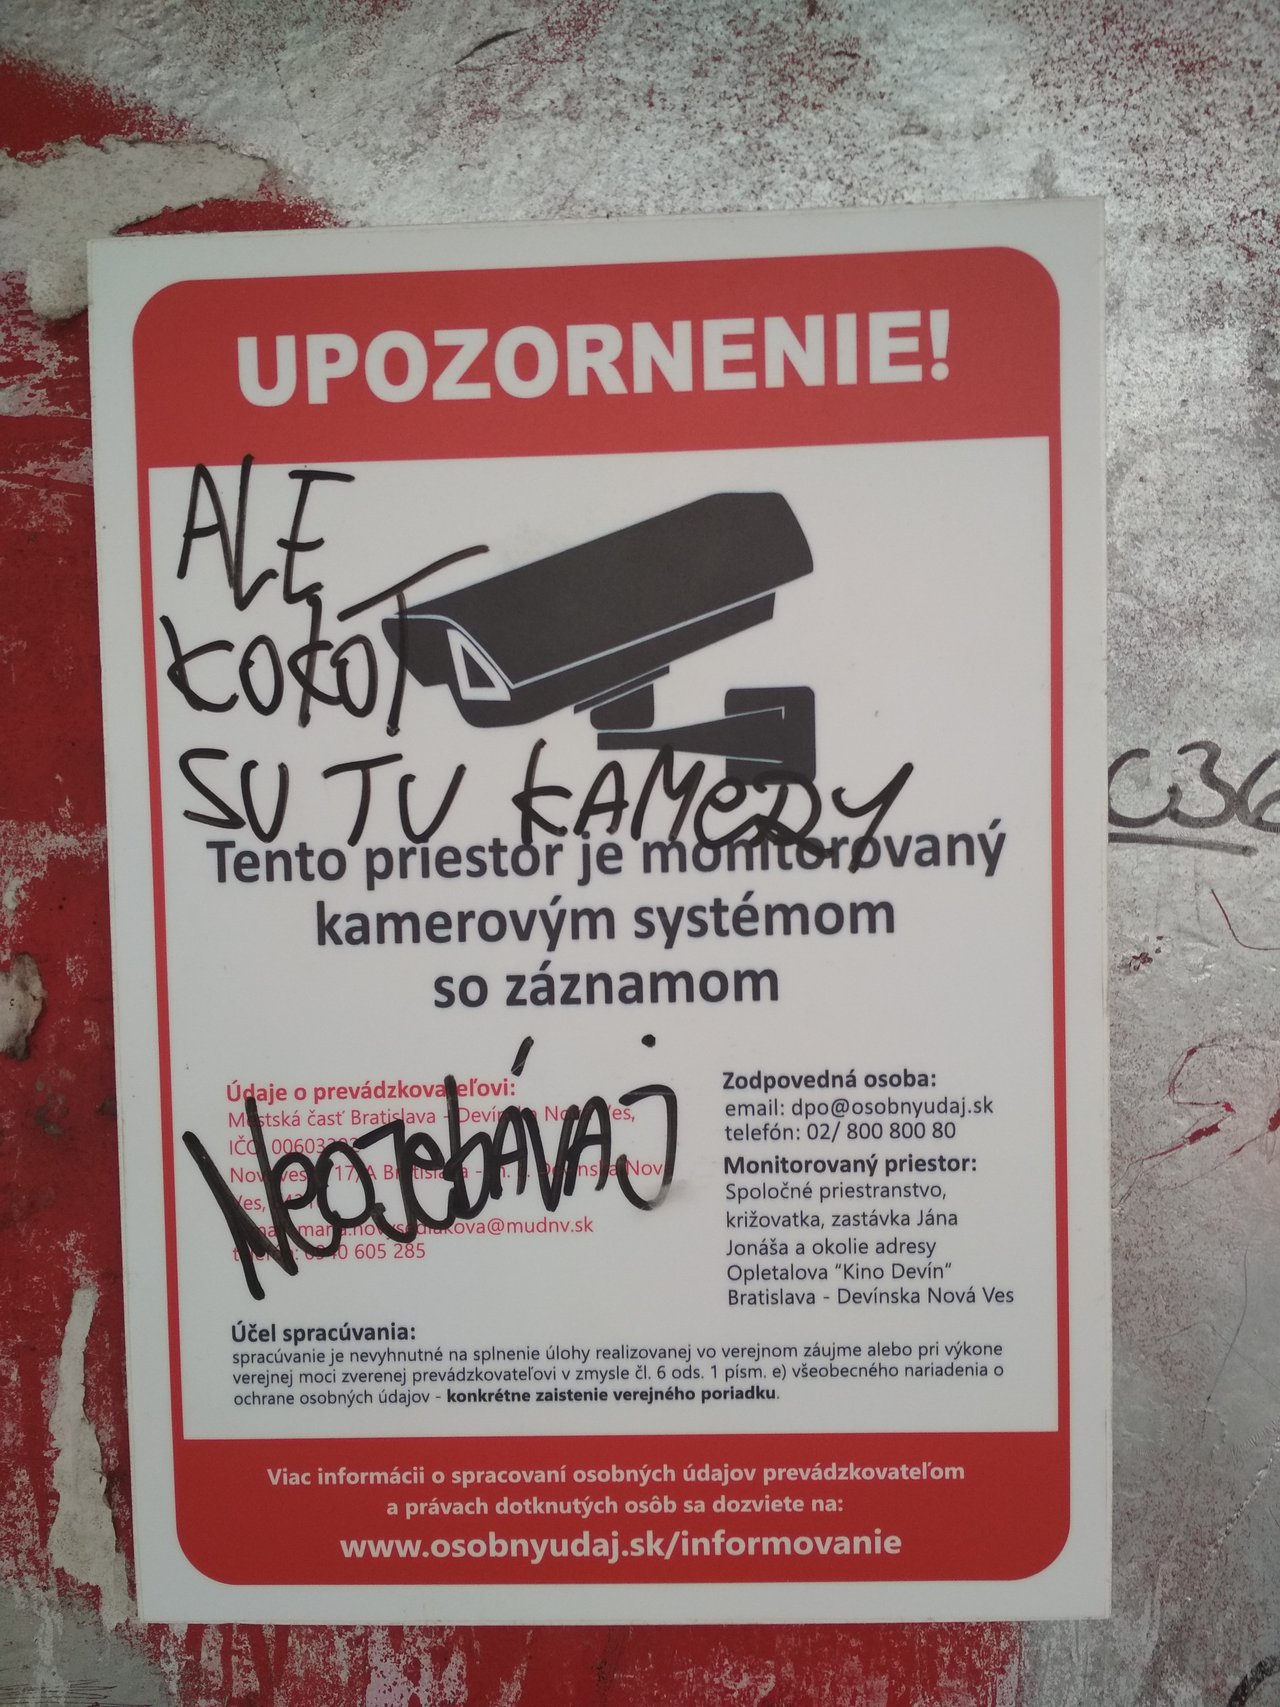 UPOZORNENIE!
ALE
KOKOT
SU TU KAMERY
Tento priestor je monitorovaný
kamerovým systémom
so záznamom
Údaje o prevádzkovateľovi:
Mestská časť Bratislava - Devínska Nová Ves,
IČO
Bratislava Devínska Nov
Ves,
telefón: 605 285
NEOJEBÁVAJ
Zodpovedná osoba:
email: dpo@osobnyudaj.sk
telefón: 02/ 800 800 80
Monitorovaný priestor:
Spoločné priestranstvo,
križovatka, zastávka Jána
Jonáša a okolie adresy
Opletalova "Kino Devín"
Bratislava - Devínska Nová Ves
Účel spracúvania:
spracúvanie je nevyhnutné na splnenie úlohy realizovanej vo verejnom záujme alebo pri výkone
verejnej moci zverenej prevádzkovateľovi v zmysle čl. 6 ods. 1 písm. e) všeobecného nariadenia o
ochrane osobných údajov - konkrétne zaistenie verejného poriadku.
Viac informácii o spracovaní osobných údajov prevádzkovateľom
a právach dotknutých osôb sa dozviete na:
www.osobnyudaj.sk/informovanie